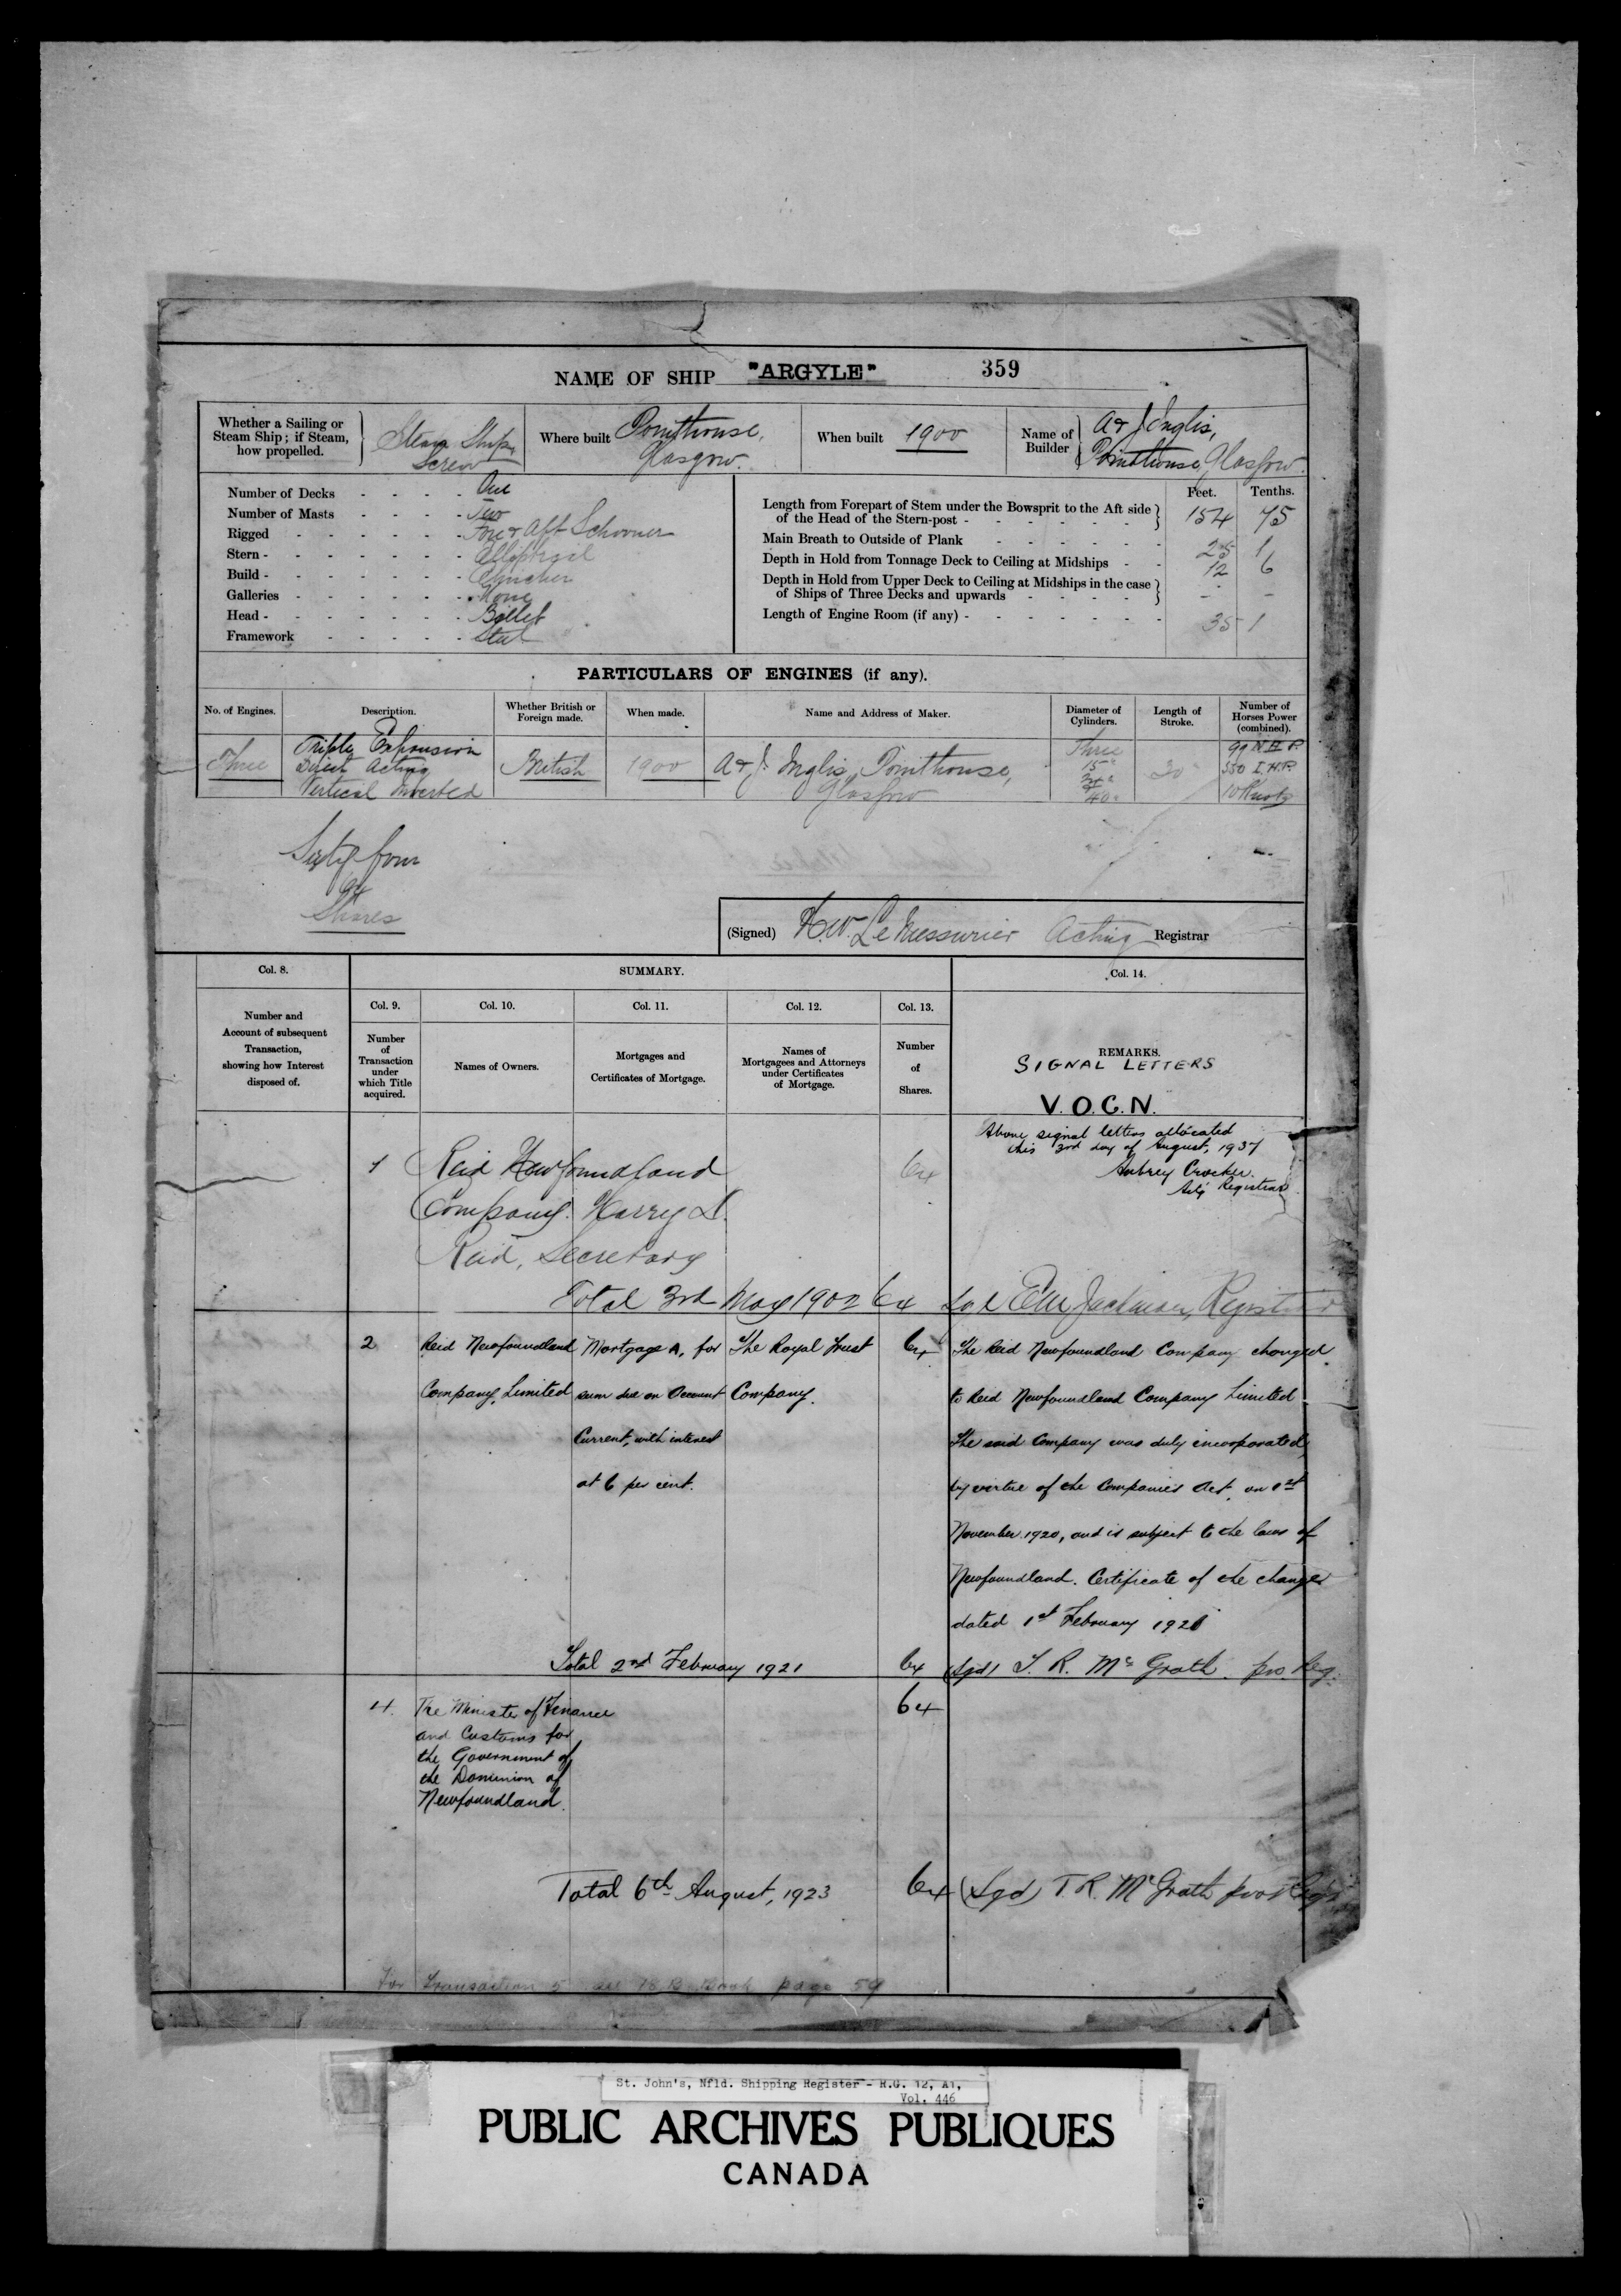 NAME OF SHIP "ARGYLE" 359
Whether a Sailing or Steam Ship; if Steam, how propelled. Steam Ship Screw
Where built Pointhouse, Glasgow.
When built 1900
Name of Builder A & J Inglis, Pointhouse, Glasgow.
Number of Decks - - - - One
Number of Masts - - - - Two
Rigged - - - - - - Fore & Aft Schooner
Stern - - - - - - - Elliptical
Build - - - - - - - Clincher
Galleries - - - - - - None
Head - - - - - - - Billet
Framework - - - - - Steel
Feet. Tenths.
Length from Forepart of Stem under the Bowsprit to the Aft side
of the Head of the Stern-post - - - - - - 154 75
Main Breath to Outside of Plank - - - - - - 25 1
Depth in Hold from Tonnage Deck to Ceiling at Midships - - 12 6
Depth in Hold from Upper Deck to Ceiling at Midships in the case
of Ships of Three Decks and upwards - - - - - -
Length of Engine Room (if any) - - - - - - - 35 1
PARTICULARS OF ENGINES (if any).
No. of Engines. Description. Whether British or Foreign made. When made. Name and Address of Maker. Diameter of Cylinders. Length of Stroke. Number of Horses Power (combined).
Three
Triple Expansion
Direct Acting
Vertical Inverted
British
1900
A & J. Inglis, Pointhouse,
Glasgow
Three
15"
40"
30"
99 N.H.P.
550 I.H.P.
10 Knots
Sixty four
64
Shares
(Signed) H.W. LeMessurier Acting Registrar
Col. 8. SUMMARY. Col. 14.
Number and
Account of subsequent
Transaction,
showing how Interest
disposed of.
Col. 9. Col. 10. Col. 11. Col. 12. Col. 13.
Number
of
Transaction
under
which Title
acquired.
Names of Owners.
Mortgages and
Certificates of Mortgage.
Names of
Mortgagees and Attorneys
under Certificates
of Mortgage.
Number
of
Shares.
REMARKS.
SIGNAL LETTERS
V.O.C.N.
Above signal letters allocated
this 3rd day of August, 1937
Aubrey Crocker.
Actg Registrar
1 Reid Newfoundland 64
Company. Harry D.
Reid, Secretary
Total 3rd May 1902 64 Sgd E M Jackman, Registrar
2 Reid Newfoundland Mortgage A, for The Royal Trust 64 The Reid Newfoundland Company changed
Company, Limited sum due on Account Company. to Reid Newfoundland Company Limited
Current, with interest The said Company was duly incorporated
at 6 per cent. by virtue of the Companies Act, on 1st
November 1920, and is subject to the laws of
Newfoundland. Certificate of the change
dated 1st February 1921
Total 2nd February 1921 64 (Sgd) T. R. McGrath. pro Reg.
4. The Minister of Finance 64
and Customs for
the Government of
the Dominion of
Newfoundland.
Total 6th August, 1923 64 (Sgd) T. R. McGrath pro Regr
For Transaction 5 see 18 B Book page 59
St. John's, Nfld. Shipping Register - R.G. 12, A1,
Vol. 446
PUBLIC ARCHIVES PUBLIQUES
CANADA